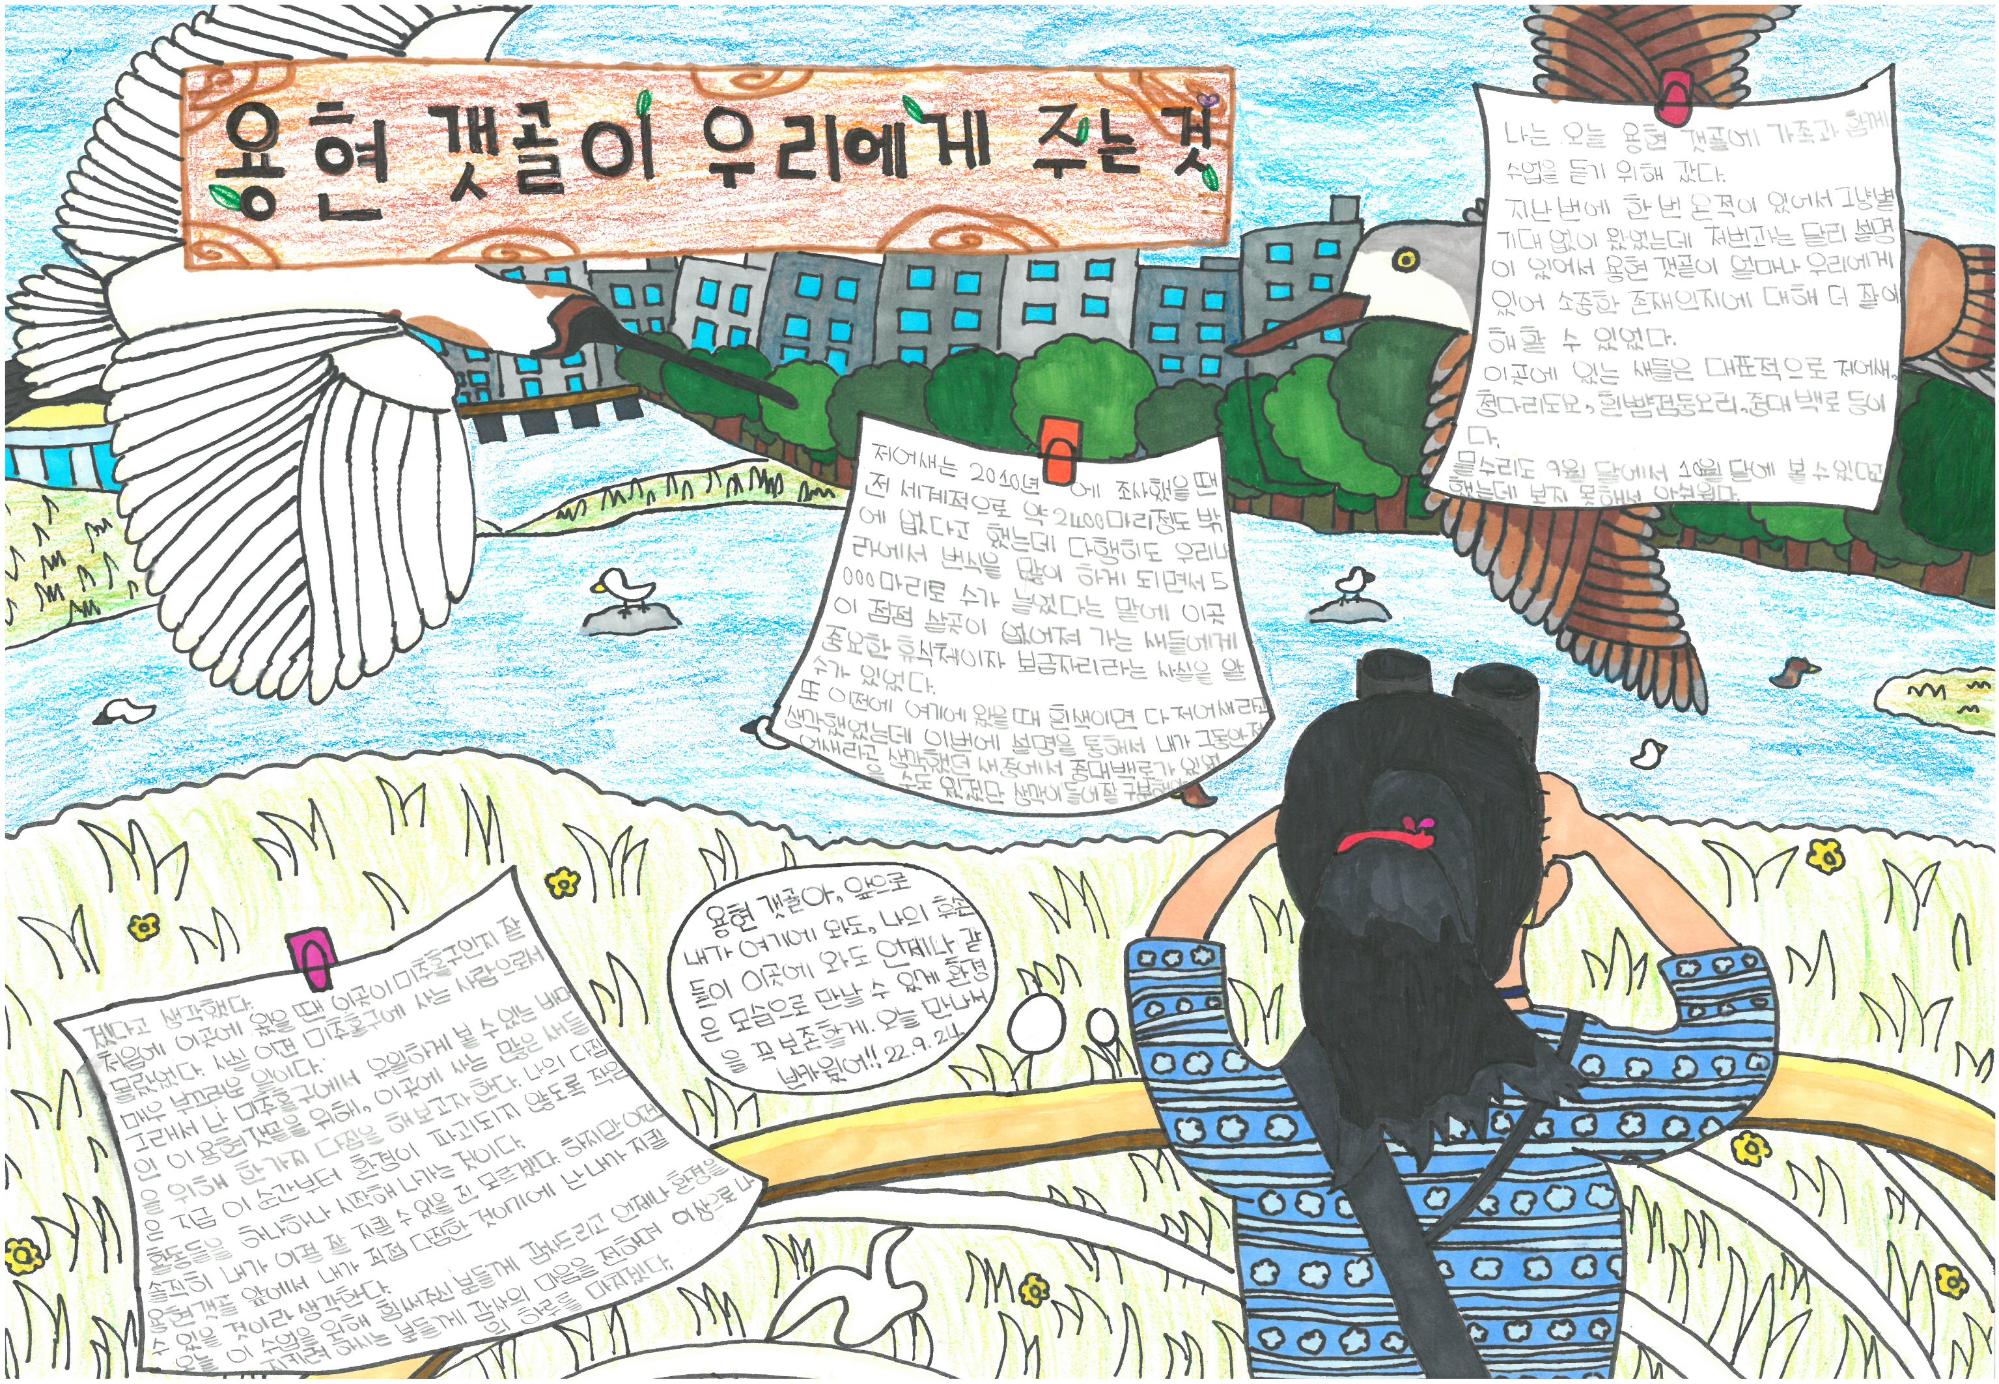 용현 갯골이 우리에게 주는 것
나는 오늘 용현 갯골에 가족과 함께
수업을 듣기 위해 갔다.
지난번에 한번 온적이 있어서 그냥별
기대 없이 왔었는데 저번과는 달리 설명
이 있어서 용현 갯골이 얼마나 우리에게
있어 소중한 존재인지에 대해 더 잘이
해할 수 있었다.
이곳에 있는 새들은 대표적으로 저어새,
청다리도요, 흰뺨검둥오리,중대백로 등이
다.
물수리도 9월 달에서 10월 달에 볼수있다고
했는데 보지 못해서 아쉬웠다.
저어새는 2010년 에 조사했을 땐
전 세계적으로 약 2400마리정도 밖
에 없다고 했는데 다행히도 우리나
라에서 번식을 많이 하게 되면서 5
000마리로 수가 늘었다는 말에 이곳
이 점점 살곳이 없어져 가는 새들에게
중요한 휴식처이자 보금자리라는 사실을 알
수가 있었다.
또 이전에 여기에 왔을 때 흰색이면 다 저어새라고
생각했었는데 이번에 설명을 통해서 내가 그동안 저
어새라고 생각했던 새중에서 중대백로가 있었
을 수도 있겠단 생각이들어 잘 구분해야
겠다고 생각했다.
처음에 이곳에 왔을 땐 이곳이 미추홀구인지 잘
몰랐었다. 사실 이런 미추홀구에 사는 사람으로서
매우 부끄러운 일이다.
그래서 난 미추홀구에서 유일하게 볼 수 있는 바다
인 이 용현갯골을 위해, 이곳에 사는 많은 새들
을 위해 한가지 다짐을 해보고자 한다. 나의 다짐
은 지금 이 순간부터 환경이 파괴되지 않도록 작은
활동들을 하나하나 시작해 나가는 것이다.
솔직히 내가 이걸 잘 지킬 수 있을 진 모르겠다. 하지만 이건
용현갯골 앞에서 내가 직접 다짐한 것이기에 난 내가 지킬
수 있을 것이라 생각한다.
오늘 이 수업을 위해 힘써주신 분들께 감사드리고 언제나 환경을
지키려 하시는 분들께 감사의 마음을 전하며 이상으로 나
의 하루를 마치겠다.
용현 갯골아, 앞으로
내가 여기에 와도, 나의 후손
들이 이곳에 와도 언제나 같
은 모습으로 만날 수 있게 환경
을 꼭 보존할게. 오늘 만나서
반가웠어!! 22.9.24.